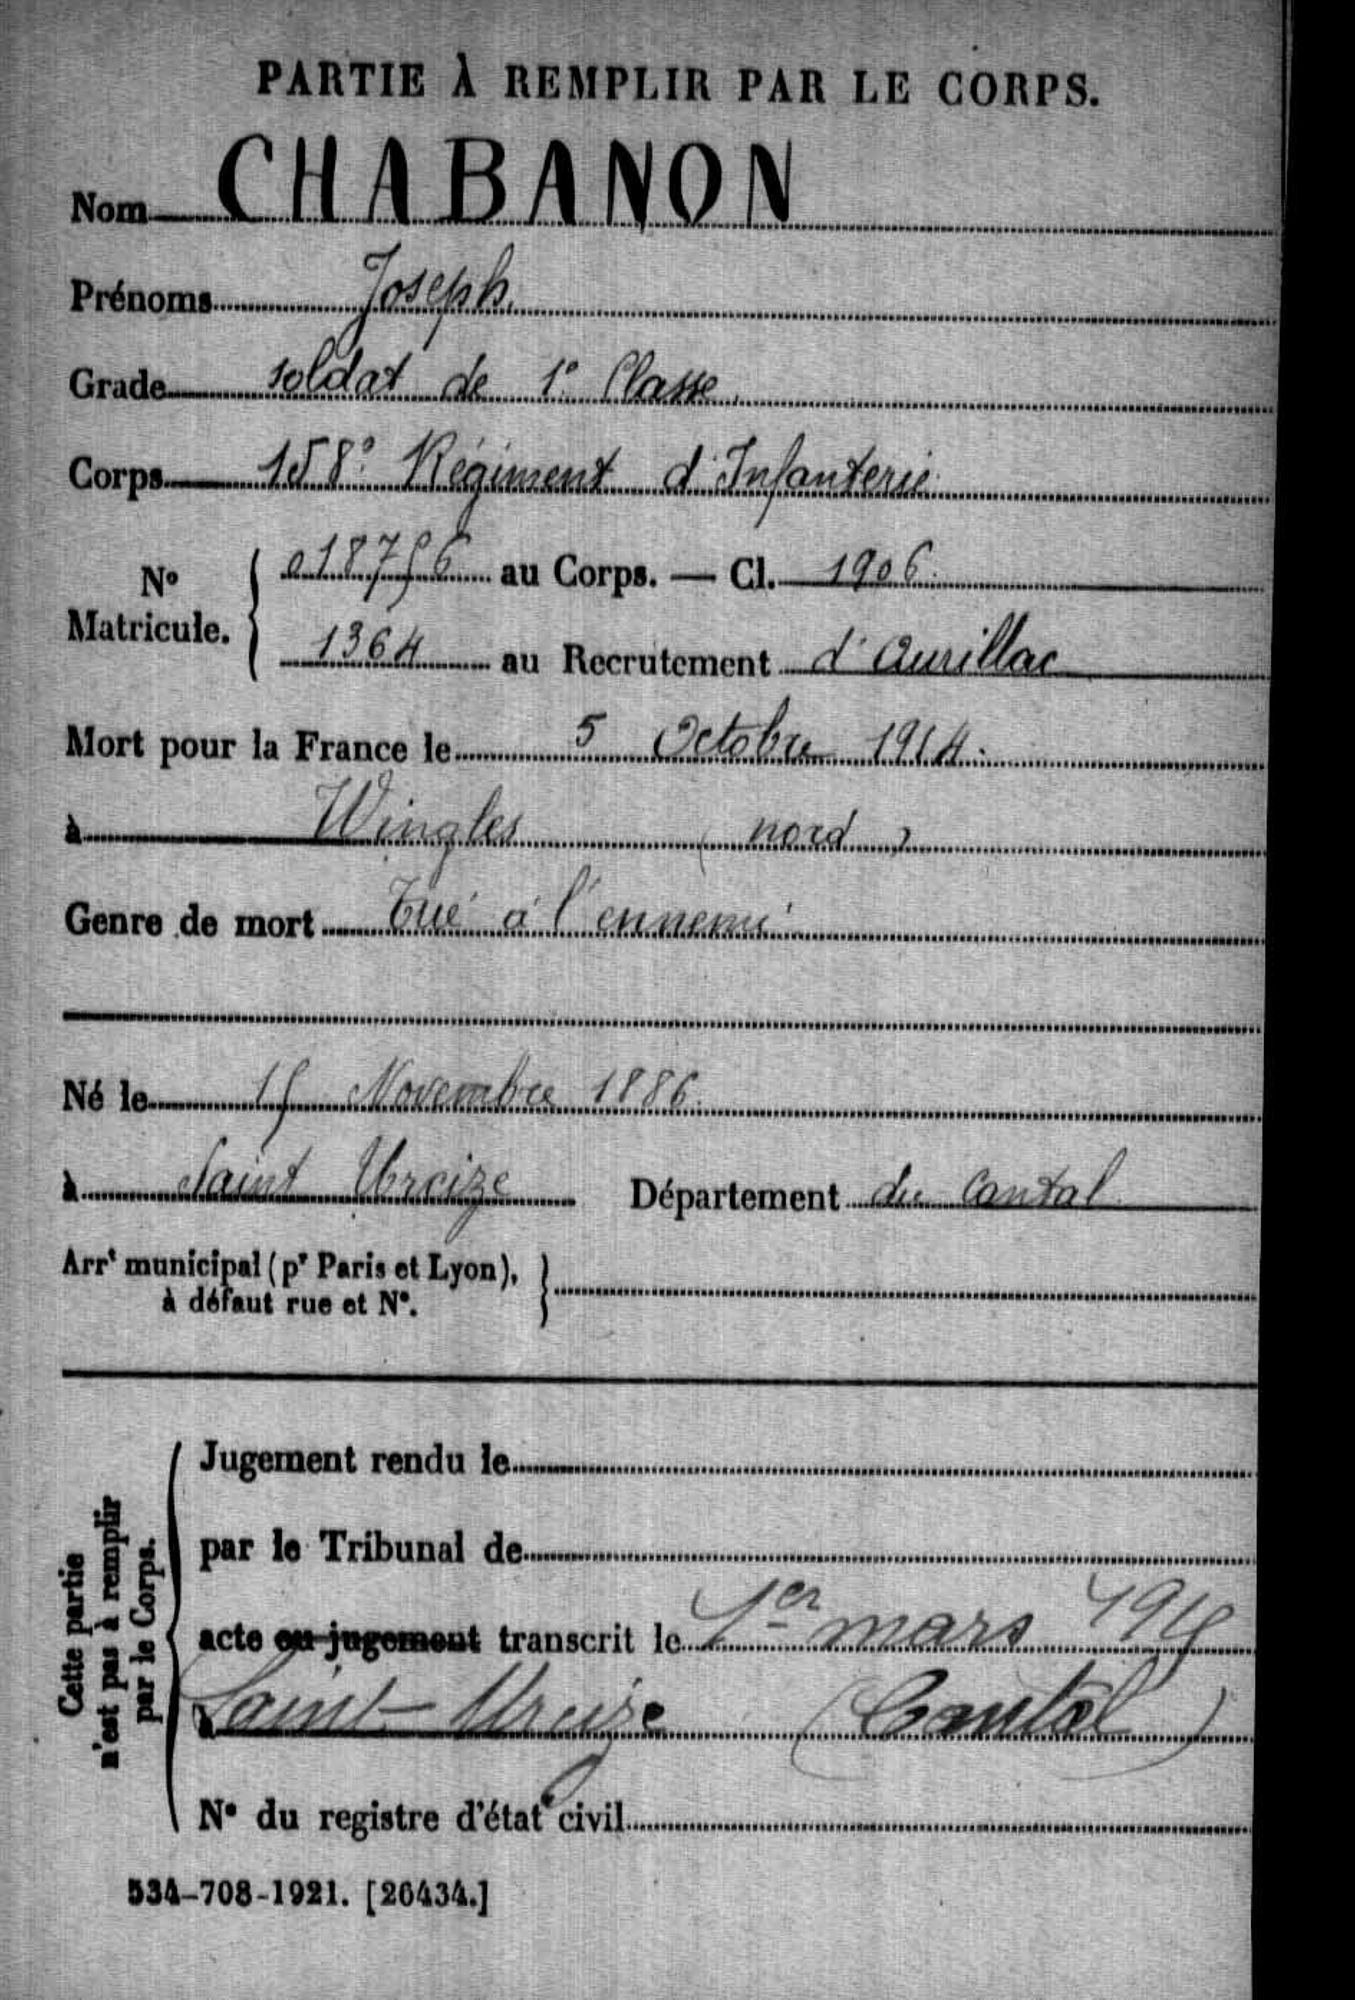 PARTIE À REMPLIR PAR LE CORPS.
Nom CHABANON
Prénoms Joseph.
Grade soldat de 1e Classe.
Corps 158e Régiment d'Infanterie
No Matricule. { 018756 au Corps. — Cl. 1906.
1364 au Recrutement d'Aurillac
Mort pour la France le 5 Octobre 1914.
à Wingles (nord)
Genre de mort Tué à l'ennemi
Né le 15 Novembre 1886.
à Saint Urcize Département du Cantal
Arrt municipal (pr Paris et Lyon), à défaut rue et No. }
Cette partie n'est pas à remplir par le Corps.
Jugement rendu le
par le Tribunal de
acte ou jugement transcrit le 1er mars 1915
à Saint-Urcize (Cantal)
No du registre d'état civil
534-708-1921. [26434.]